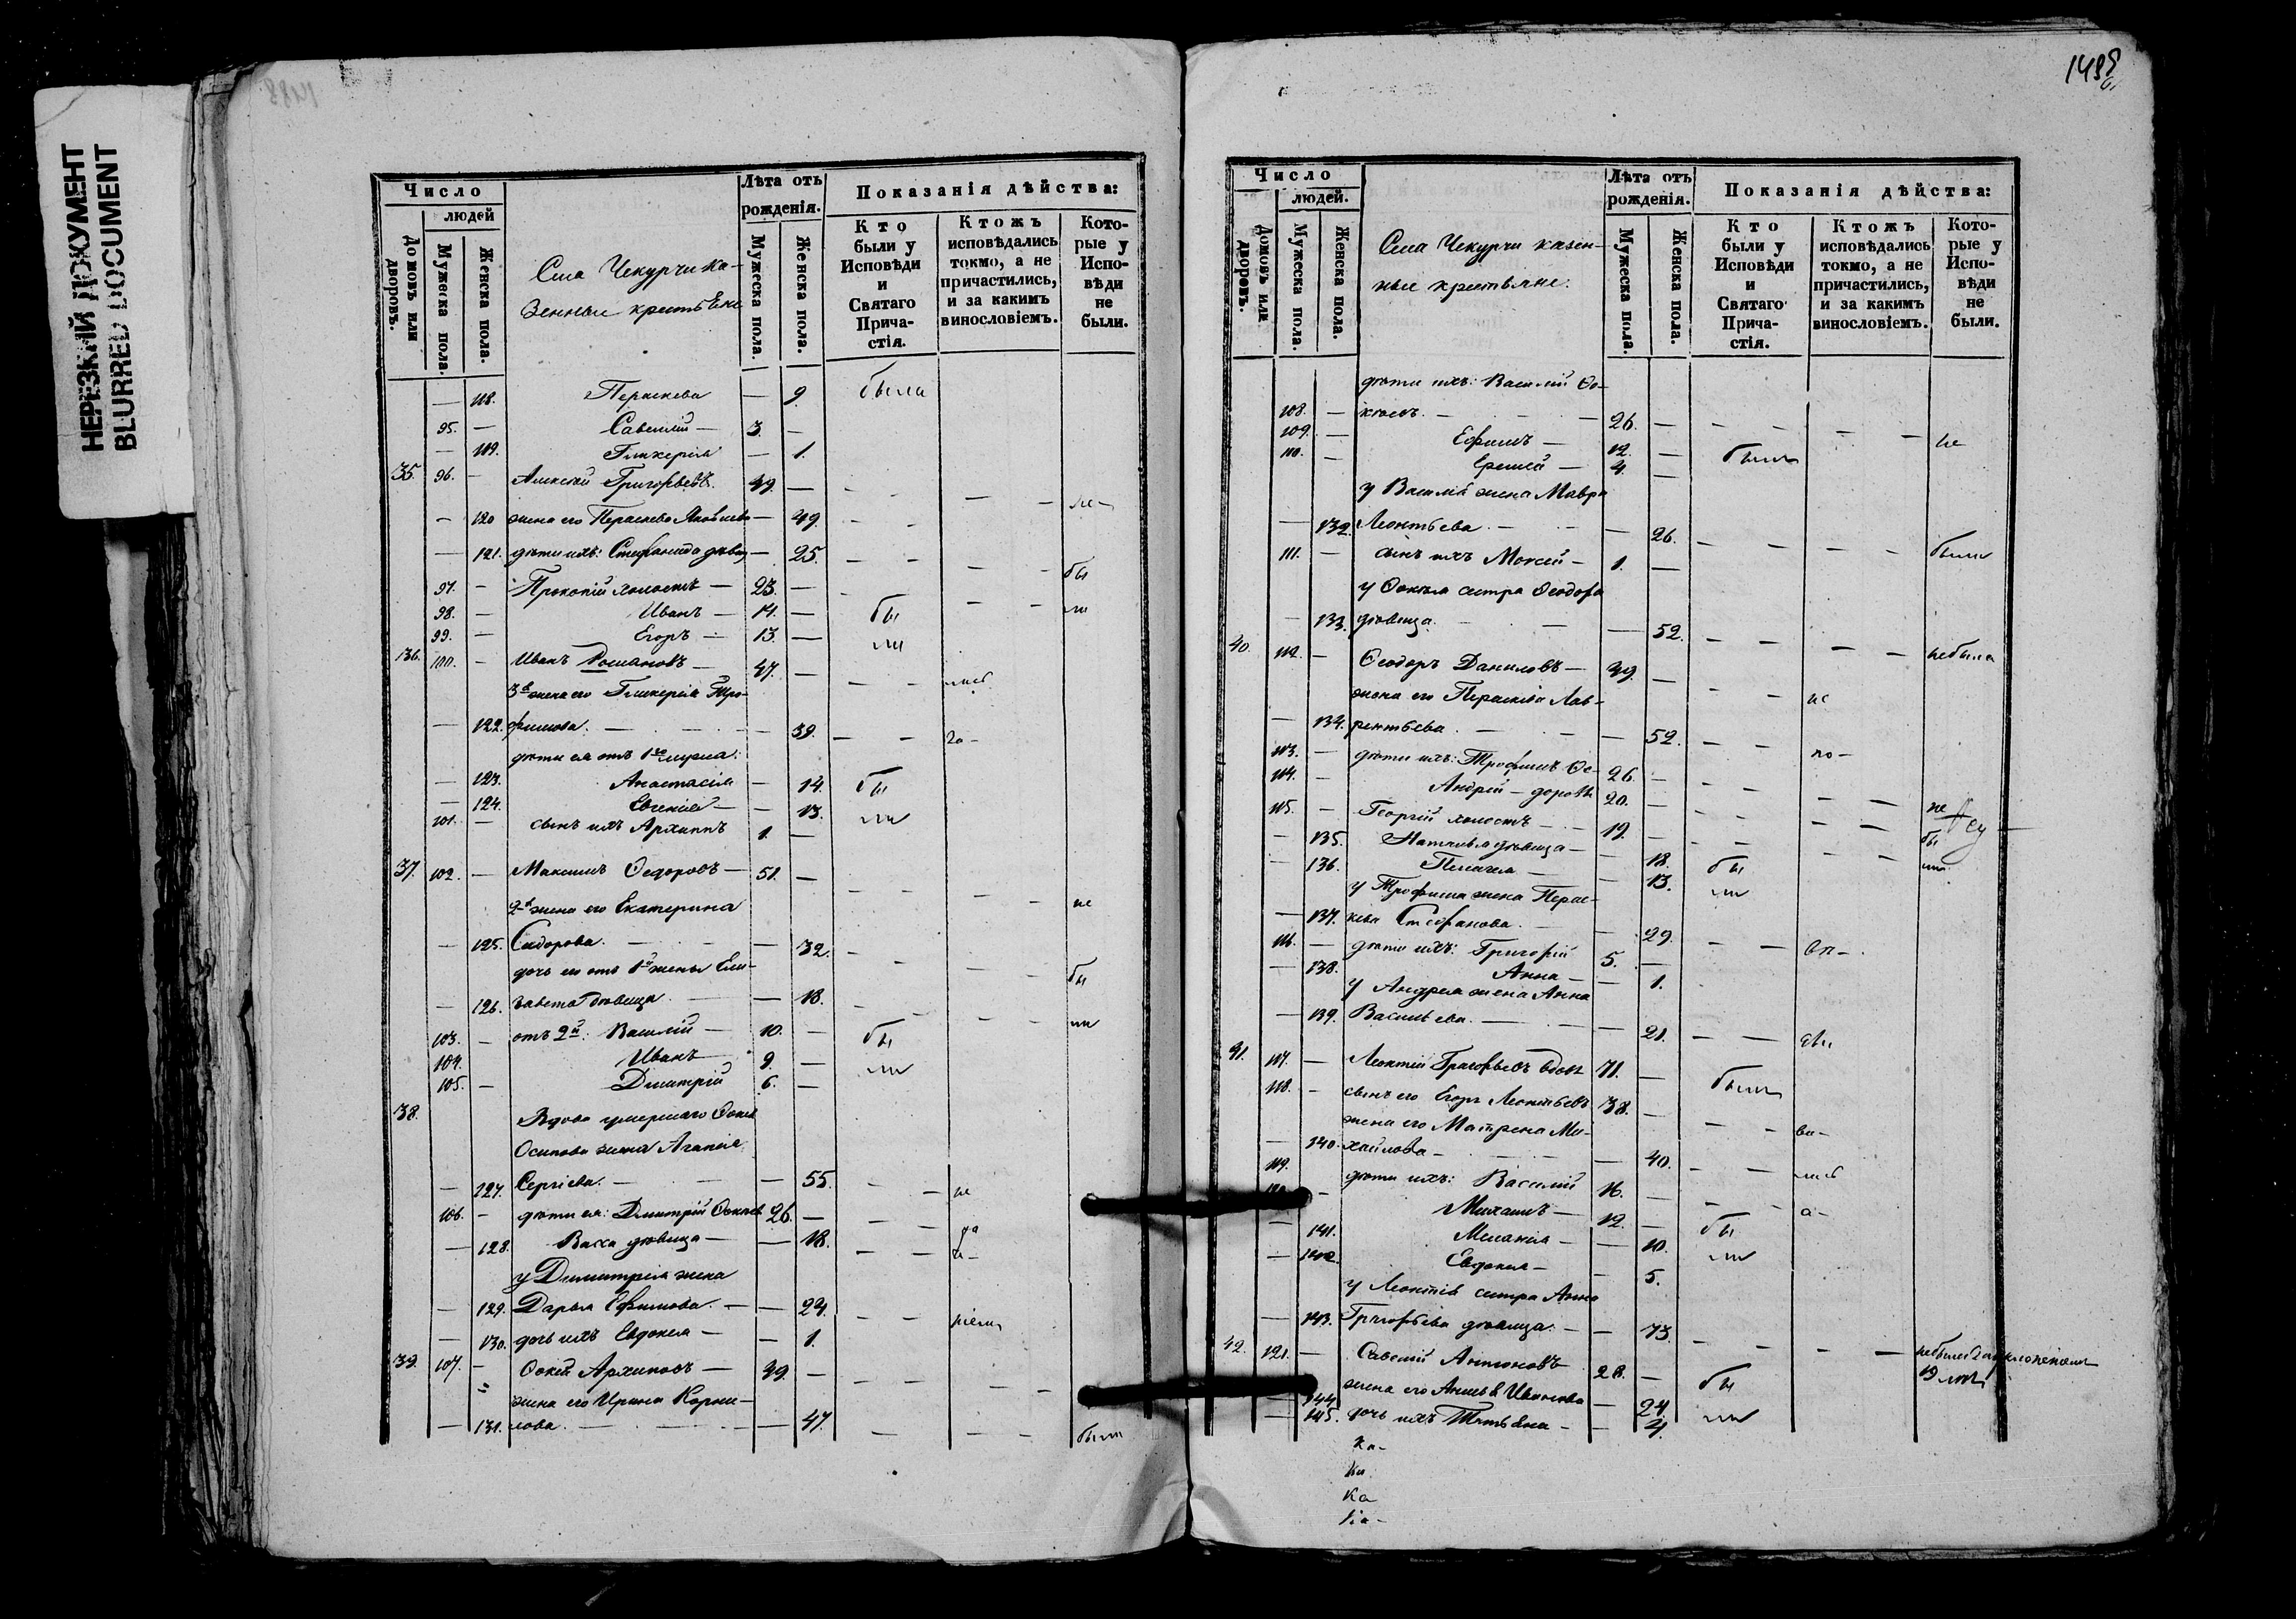 НЕРЕЗКИЙ ДОКУМЕНТ
BLURRED DOCUMENT
Число
людей
Домовъ или дворовъ.
Мужеска пола.
Женска пола.
Села Чекурчи ка-
зенные крестьяне
Лѣта отъ рожденія.
Мужеска пола.
Женска пола.
Показанія дѣйства:
Кто были у Исповѣди и Святаго Прича-стія.
Ктожъ исповѣдались токмо, а не причастились, и за какимъ винословіемъ.
Кото-рые у Испо-вѣди не были.
— 118. Параскева — 9. была
95. — Савелій — 3. —
— 119. Гликерія — 1.
35. 96. — Алексѣй Григорьевъ. 49. — не-
— 120 жена его Параскева Яковлева — 49.
— 121. дѣти ихъ: Стефанида дѣвица — 25. бы
97. — Прокопій холостъ — 23. — ли
98. — Иванъ — 14. — бы
99. — Егоръ — 13. — ли
36. 100. — Иванъ Романовъ — 47. —
3я жена его Гликерія Тро-
— 122. фимова. — 39.
дѣти ея отъ 1го мужа:
— 123. Анастасія — 14. бы
— 124. Евгенія — 13. ли
101. — сынъ ихъ Архиппъ 1. —
37. 102. — Максимъ Ѳедоровъ — 51. — не
2я жена его Екатерина
— 125. Сидорова. — 32.
дочь его отъ 1й жены Ели- бы
— 126. завета дѣвица — 18.
103. — отъ 2й: Василій — 10. — бы ли
104. Иванъ 9. — ли
105. — Димитрій 6. —
38. Вдова умершаго Ѳокея
Осипова жена Агапія
— 127. Сергіева. — 55. не
106. — дѣти ея: Димитрій Ѳокеевъ 26. —
— 128. Васса дѣвица — 18.
у Димитрія жена
— 129. Дарья Ефимова. — 24.
— 130. дочь ихъ Евдокія — 1.
39. 107. — Ѳокей Архиповъ — 49. —
жена его Ирина Корни-
— 131. лова. — 47. были
Число
людей.
Домовъ или дворовъ.
Мужеска пола.
Женска пола.
Села Чекурчи казен-
ные крестьяне.
Лѣта отъ рожденія.
Мужеска пола.
Женска пола.
Показанія дѣйства:
Кто были у Исповѣди и Святаго Прича-стія.
Ктожъ исповѣдались токмо, а не причастились, и за какимъ винословіемъ.
Кото-рые у Испо-вѣди не были.
дѣти ихъ: Василій Ѳо-
108. — кѣевъ. — 26. — не
109. — Ефимъ — 12. — были
110. — Еремей — 4. —
у Василія жена Мавра
— 132. Леонтьева. — 26. были
111. — сынъ ихъ Моисей — 1. —
у Ѳокея сестра Ѳеодора
— 133. дѣвица. — 52. не была
40. 112. — Ѳеодоръ Даниловъ — 49. — не
жена его Параскева Лав-
— 134. рентьева. — 52. по-
113. — дѣти ихъ: Трофимъ Ѳе- 26. —
114. — Андрей — доровы 20. — не
115. — Георгій холостъ — 19. — бы
— 135. Наталья дѣвица — 18. ли
— 136. Пелагея — 13. бы ли
у Трофима жена Парас-
— 137. кева Стефанова. — 29.
116. — дѣти ихъ: Григорій 5. —
— 138. Анна — 1.
у Андрея жена Анна
— 139. Васильева. — 21.
41. 117. — Леонтій Григорьевъ вдовъ 71. — были
118. — сынъ его Егоръ Леонтьевъ 38. —
жена его Матрена Ми-
— 140. хайлова — 40.
119. дѣти ихъ: Василій 16. —
120. — Михаилъ — 12. — бы
— 141. Меланія — 10. ли
— 142. Евдокія — 5.
у Леонтія сестра Анна
— 143. Григорьева дѣвица. — 73.
42. 121. — Савелій Антоновъ 28. — бы
144. жена его Анисья Иванова — 24. ли
— 145. дочь ихъ Татьяна — 4.